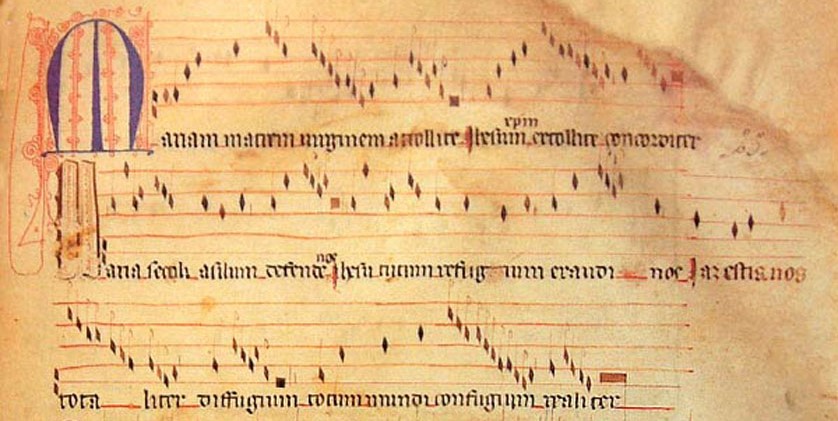 Mariam matrem uirginem attollite Jhesum xpm extollite concorditer
Maria seculi asilum defende nos Jhesu tutum refugium exaudi nos Jam estis nos
totaliter diffugium totum mundi confugium realiter